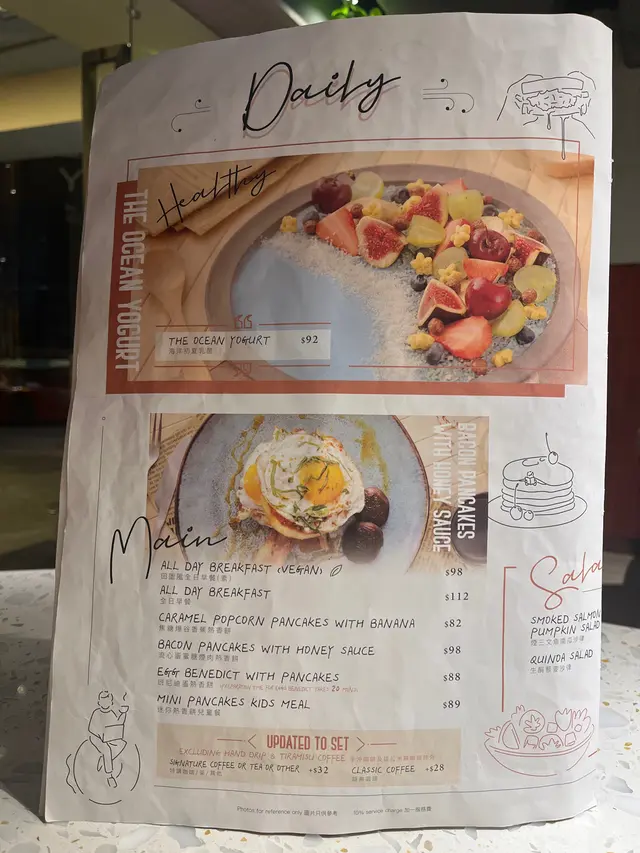 Daily
Healthy
THE OCEAN YOGURT
THE OCEAN YOGURT $92
BACON PANCAKES
WITH HONEY SAUCE
Main
ALL DAY BREAKFAST (VEGAN) $98
田園風全日早餐(素)
ALL DAY BREAKFAST $112
全日早餐
CARAMEL POPCORN PANCAKES WITH BANANA $82
焦糖爆谷香蕉熱香餅
BACON PANCAKES WITH HONEY SAUCE $98
EGG BENEDICT WITH PANCAKES $88
MINI PANCAKES KIDS MEAL $89
迷你熱香餅兒童餐
UPDATED TO SET
EXCLUDING HAND DRIP & TIRAMISU COFFEE
SIGNATURE COFFEE OR TEA OR OTHER +$32 CLASSIC COFFEE +$28
SMOKED SALMON
PUMPKIN SALAD
煙三文魚南瓜沙律
QUINOA SALAD
Photos for reference only 圖片只供參考 10% service charge 加一服務費